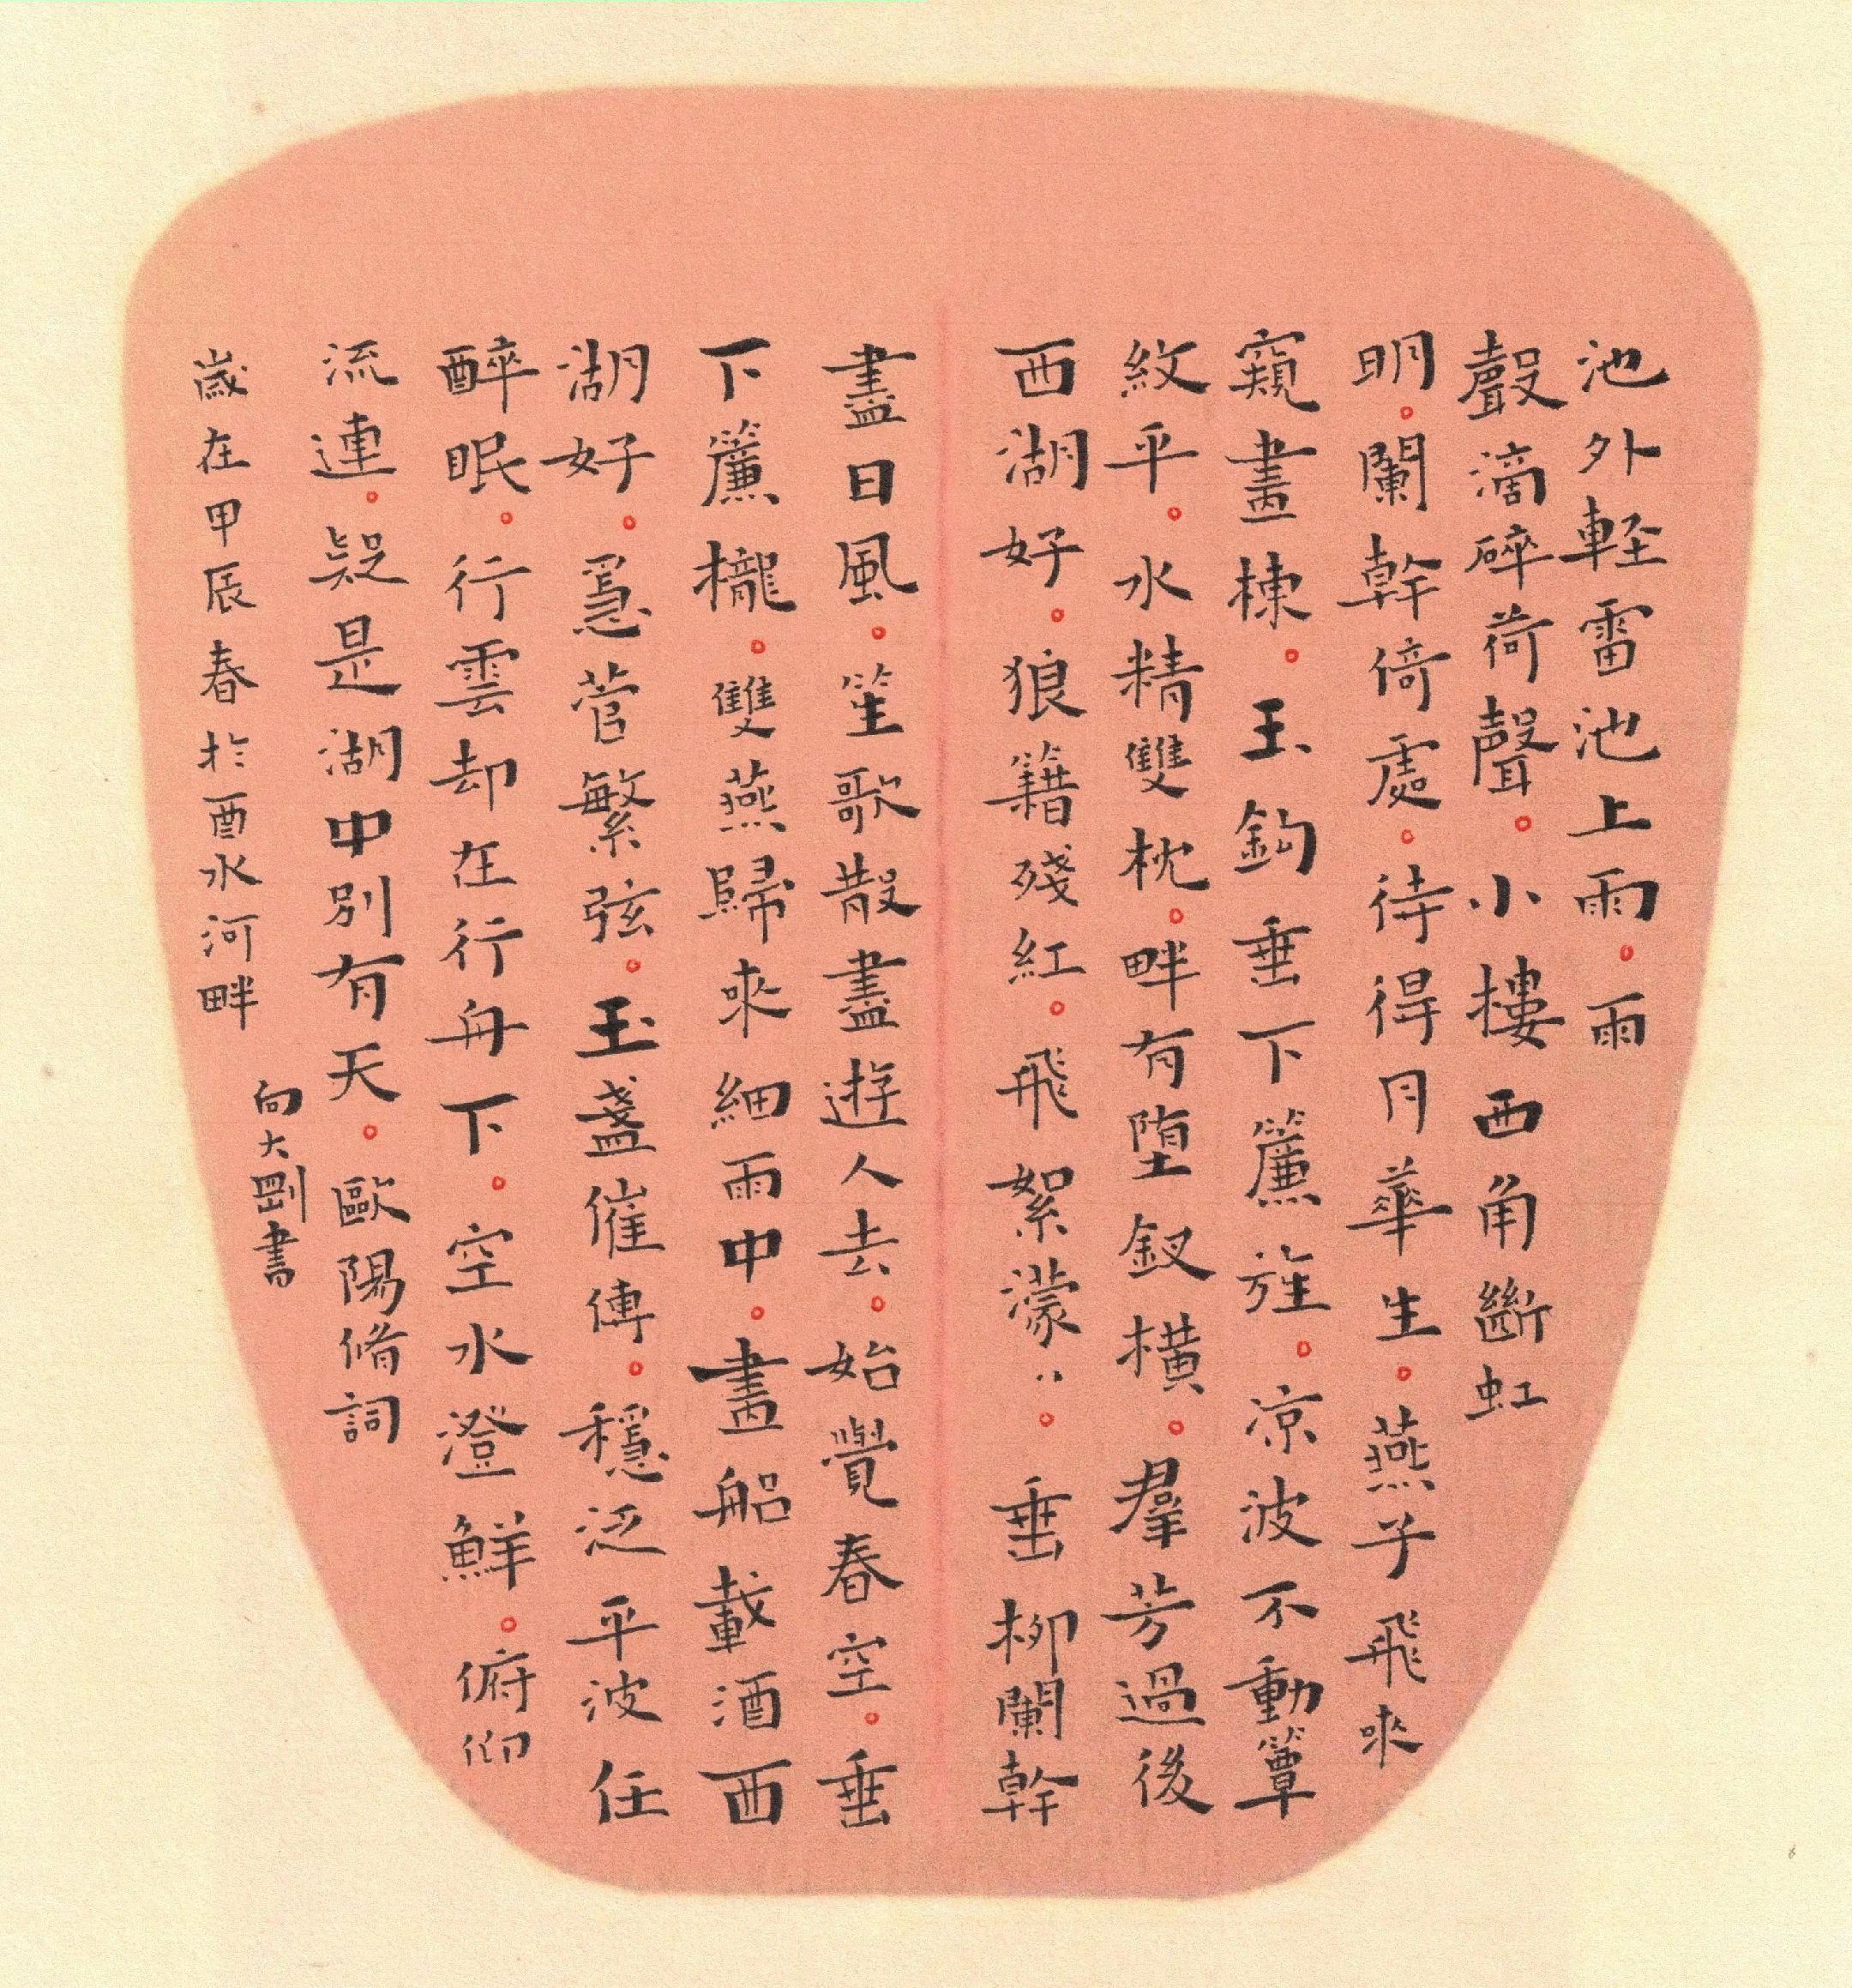 池外輕雷池上雨。雨
聲滴碎荷聲。小樓西角斷虹
明。闌幹倚處。待得月華生。燕子飛來
窺畫棟。玉鉤垂下簾旌。涼波不動簟
紋平。水精雙枕。畔有墮釵橫。羣芳過後
西湖好。狼籍殘紅。飛絮濛〻。垂柳闌幹
盡日風。笙歌散盡遊人去。始覺春空。垂
下簾櫳。雙燕歸來細雨中。畫船載酒西
湖好。急管繁弦。玉盞催傳。穩泛平波任
醉眠。行雲却在行舟下。空水澄鮮。俯仰
流連。疑是湖中別有天。歐陽脩詞
歲在甲辰春於酉水河畔
向大剛書